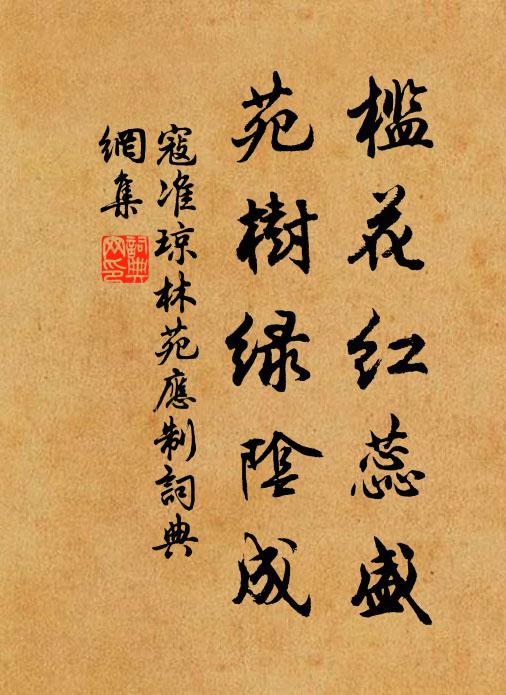 檻花红蕊盛
苑樹緑陰成
寇准琼林苑應制詞典
網集
詞典網印